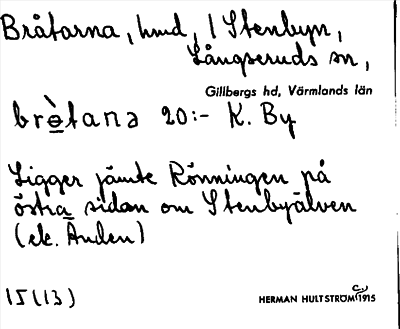 Bråtarna, hmd, / Stenbyn,
Långseruds sn,
Gillbergs hd, Värmlands län
brètana 20:- K. By
Ligger jämte Rönningen på
östra sidan om Stenbyälven
(ek. Anden)
15(13)
HERMAN HULTSTRÖM 1915